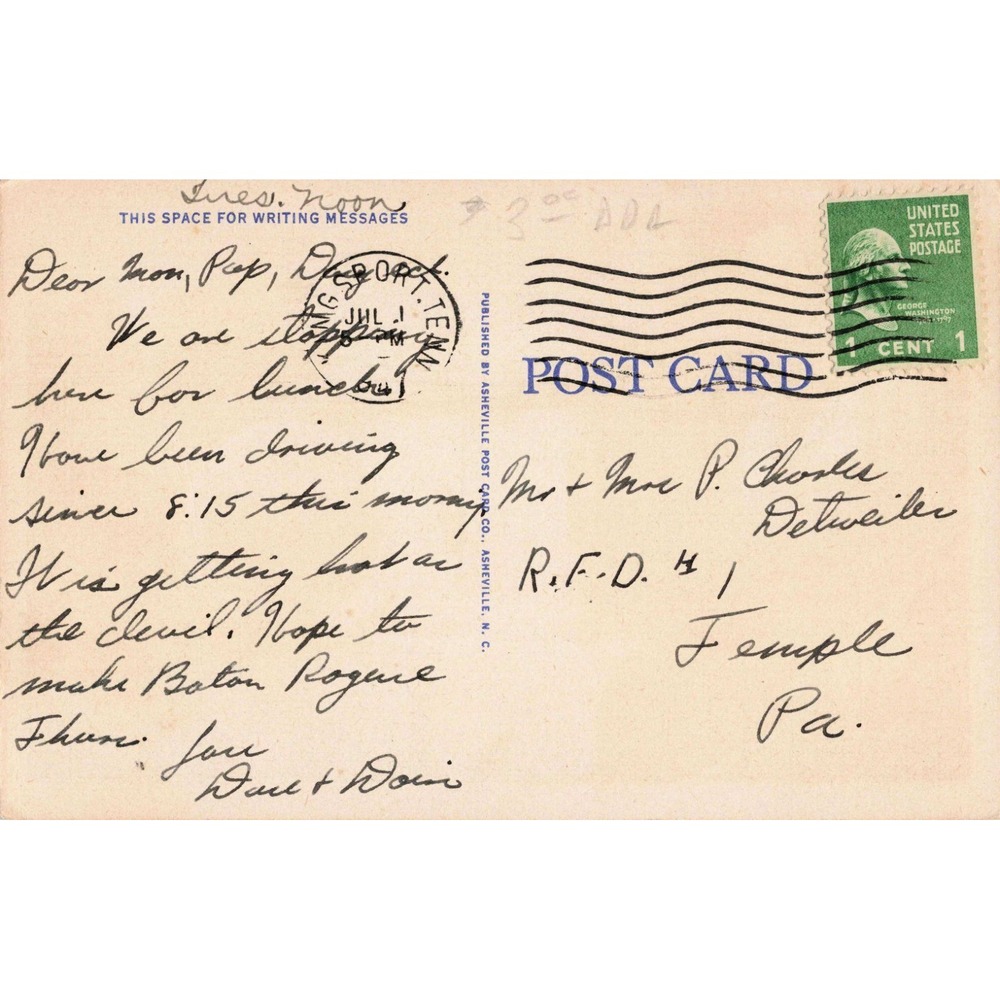 Tues. Noon
THIS SPACE FOR WRITING MESSAGES
Dear Mom, Pop,
We are stopping
here for lunch.
Have been driving
since 8:15 this morng
It is getting hot as
the devil. Hope to
make Baton Rogeue
Thurs.
Love
&
KINGSPORT. TENN
JUL 1
PM
PUBLISHED BY ASHEVILLE POST CARD CO., ASHEVILLE, N. C.
$ 3 00
UNITED
STATES
POSTAGE
GEORGE
WASHINGTON
1 CENT 1
POST CARD
Mr + Mrs P. Charles
Detweiler
R.F.D. # 1
Temple
Pa.